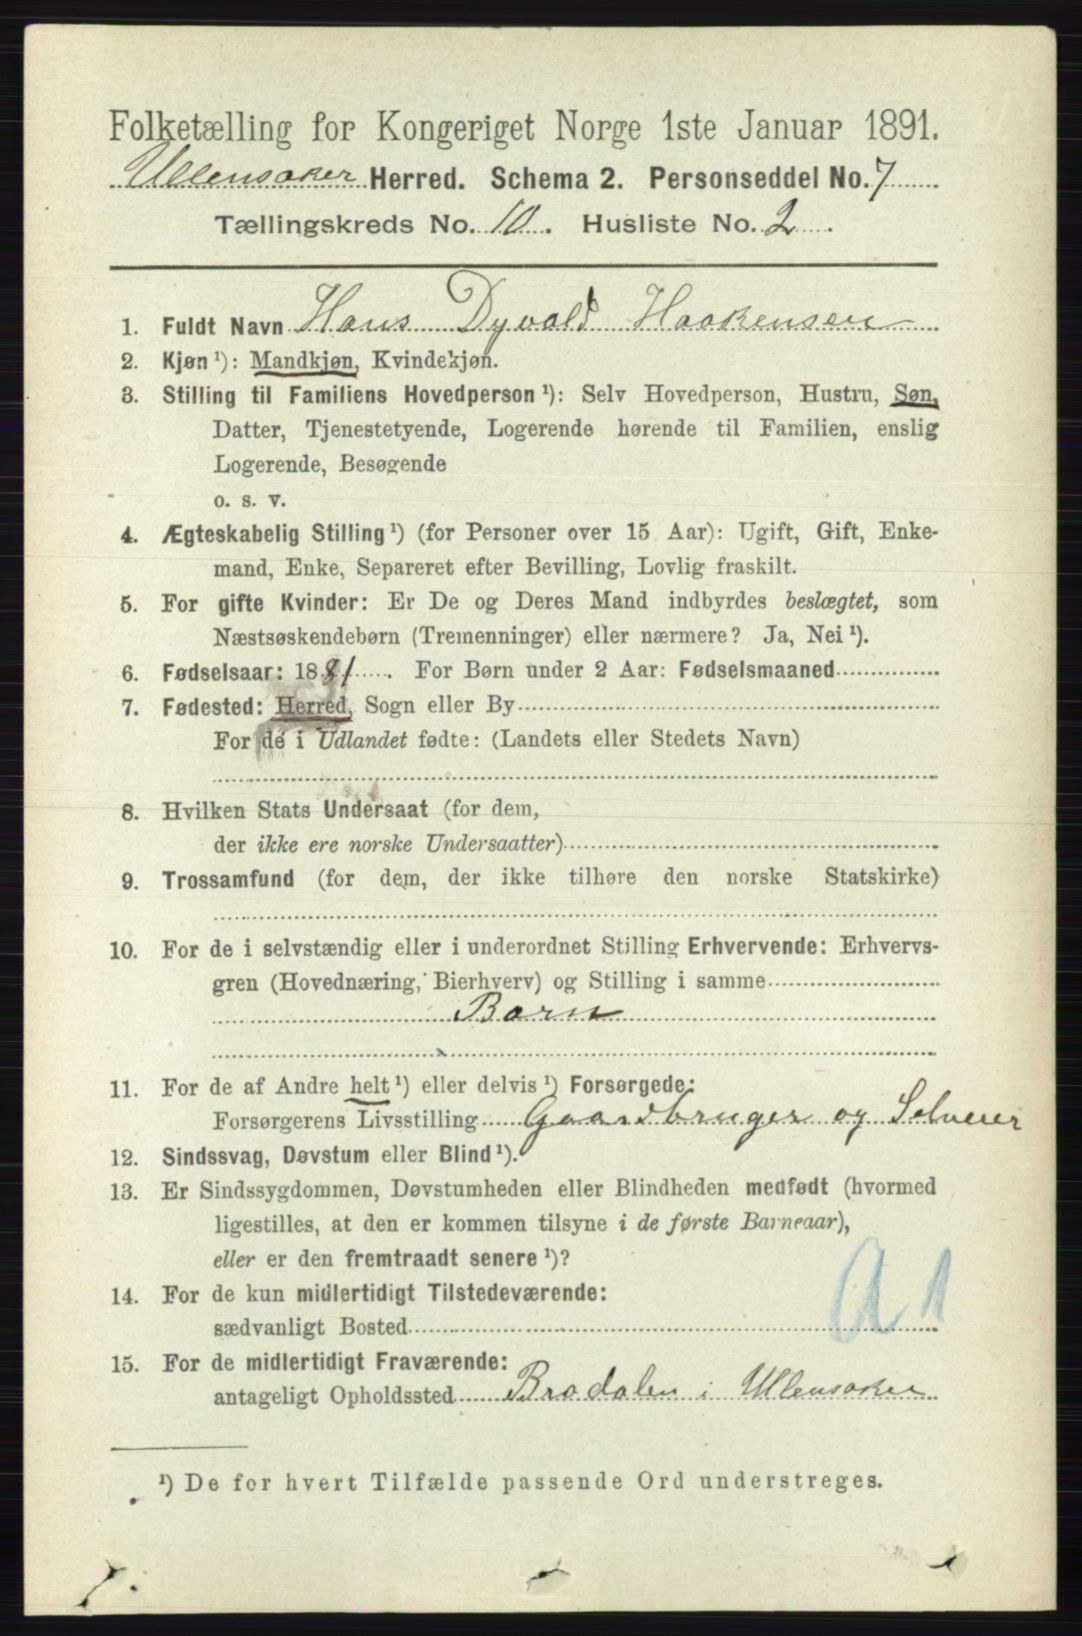 Folketælling for Kongeriget Norge 1ste Januar 1891.
Ullensaker Herred. Schema 2. Personseddel No. 7
Tællingskreds No. 10. Husliste No. 2.
1. Fuldt Navn Hans Dyvald Haakensen
2. Kjøn ¹): Mandkjøn, Kvindekjøn.
3. Stilling til Familiens Hovedperson ¹): Selv Hovedperson, Hustru, Søn,
Datter, Tjenestetyende, Logerende hørende til Familien, enslig
Logerende, Besøgende
o. s. v.
4. Ægteskabelig Stilling ¹) (for Personer over 15 Aar): Ugift, Gift, Enke-
mand, Enke, Separeret efter Bevilling, Lovlig fraskilt.
5. For gifte Kvinder: Er De og Deres Mand indbyrdes beslægtet, som
Næstsøskendebørn (Tremenninger) eller nærmere? Ja, Nei ¹).
6. Fødselsaar: 1881. For Børn under 2 Aar: Fødselsmaaned
7. Fødested: Herred, Sogn eller By
For de i Udlandet fødte: (Landets eller Stedets Navn)
8. Hvilken Stats Undersaat (for dem,
der ikke ere norske Undersaatter)
9. Trossamfund (for dem, der ikke tilhøre den norske Statskirke)
10. For de i selvstændig eller i underordnet Stilling Erhvervende: Erhvervs-
gren (Hovednæring, Bierhverv) og Stilling i samme
Barn
11. For de af Andre helt ¹) eller delvis ¹) Forsørgede:
Forsørgerens Livsstilling Gaardbruger og Selveier
12. Sindssvag, Døvstum eller Blind ¹).
13. Er Sindssygdommen, Døvstumheden eller Blindheden medfødt (hvormed
ligestilles, at den er kommen tilsyne i de første Barneaar),
eller er den fremtraadt senere ¹)?
14. For de kun midlertidigt Tilstedeværende:
sædvanligt Bosted
A1
15. For de midlertidigt Fraværende:
antageligt Opholdssted Brodalen i Ullensaker
¹) De for hvert Tilfælde passende Ord understreges.